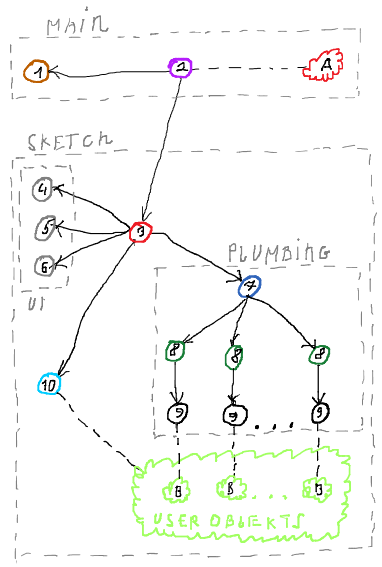 MAIN
1 2 A
SKETCH
4
5 3
6
PLUMBING
UI
7
8 8 8
10
9 9 ... 9
B B ... B
USER OBJEKTS